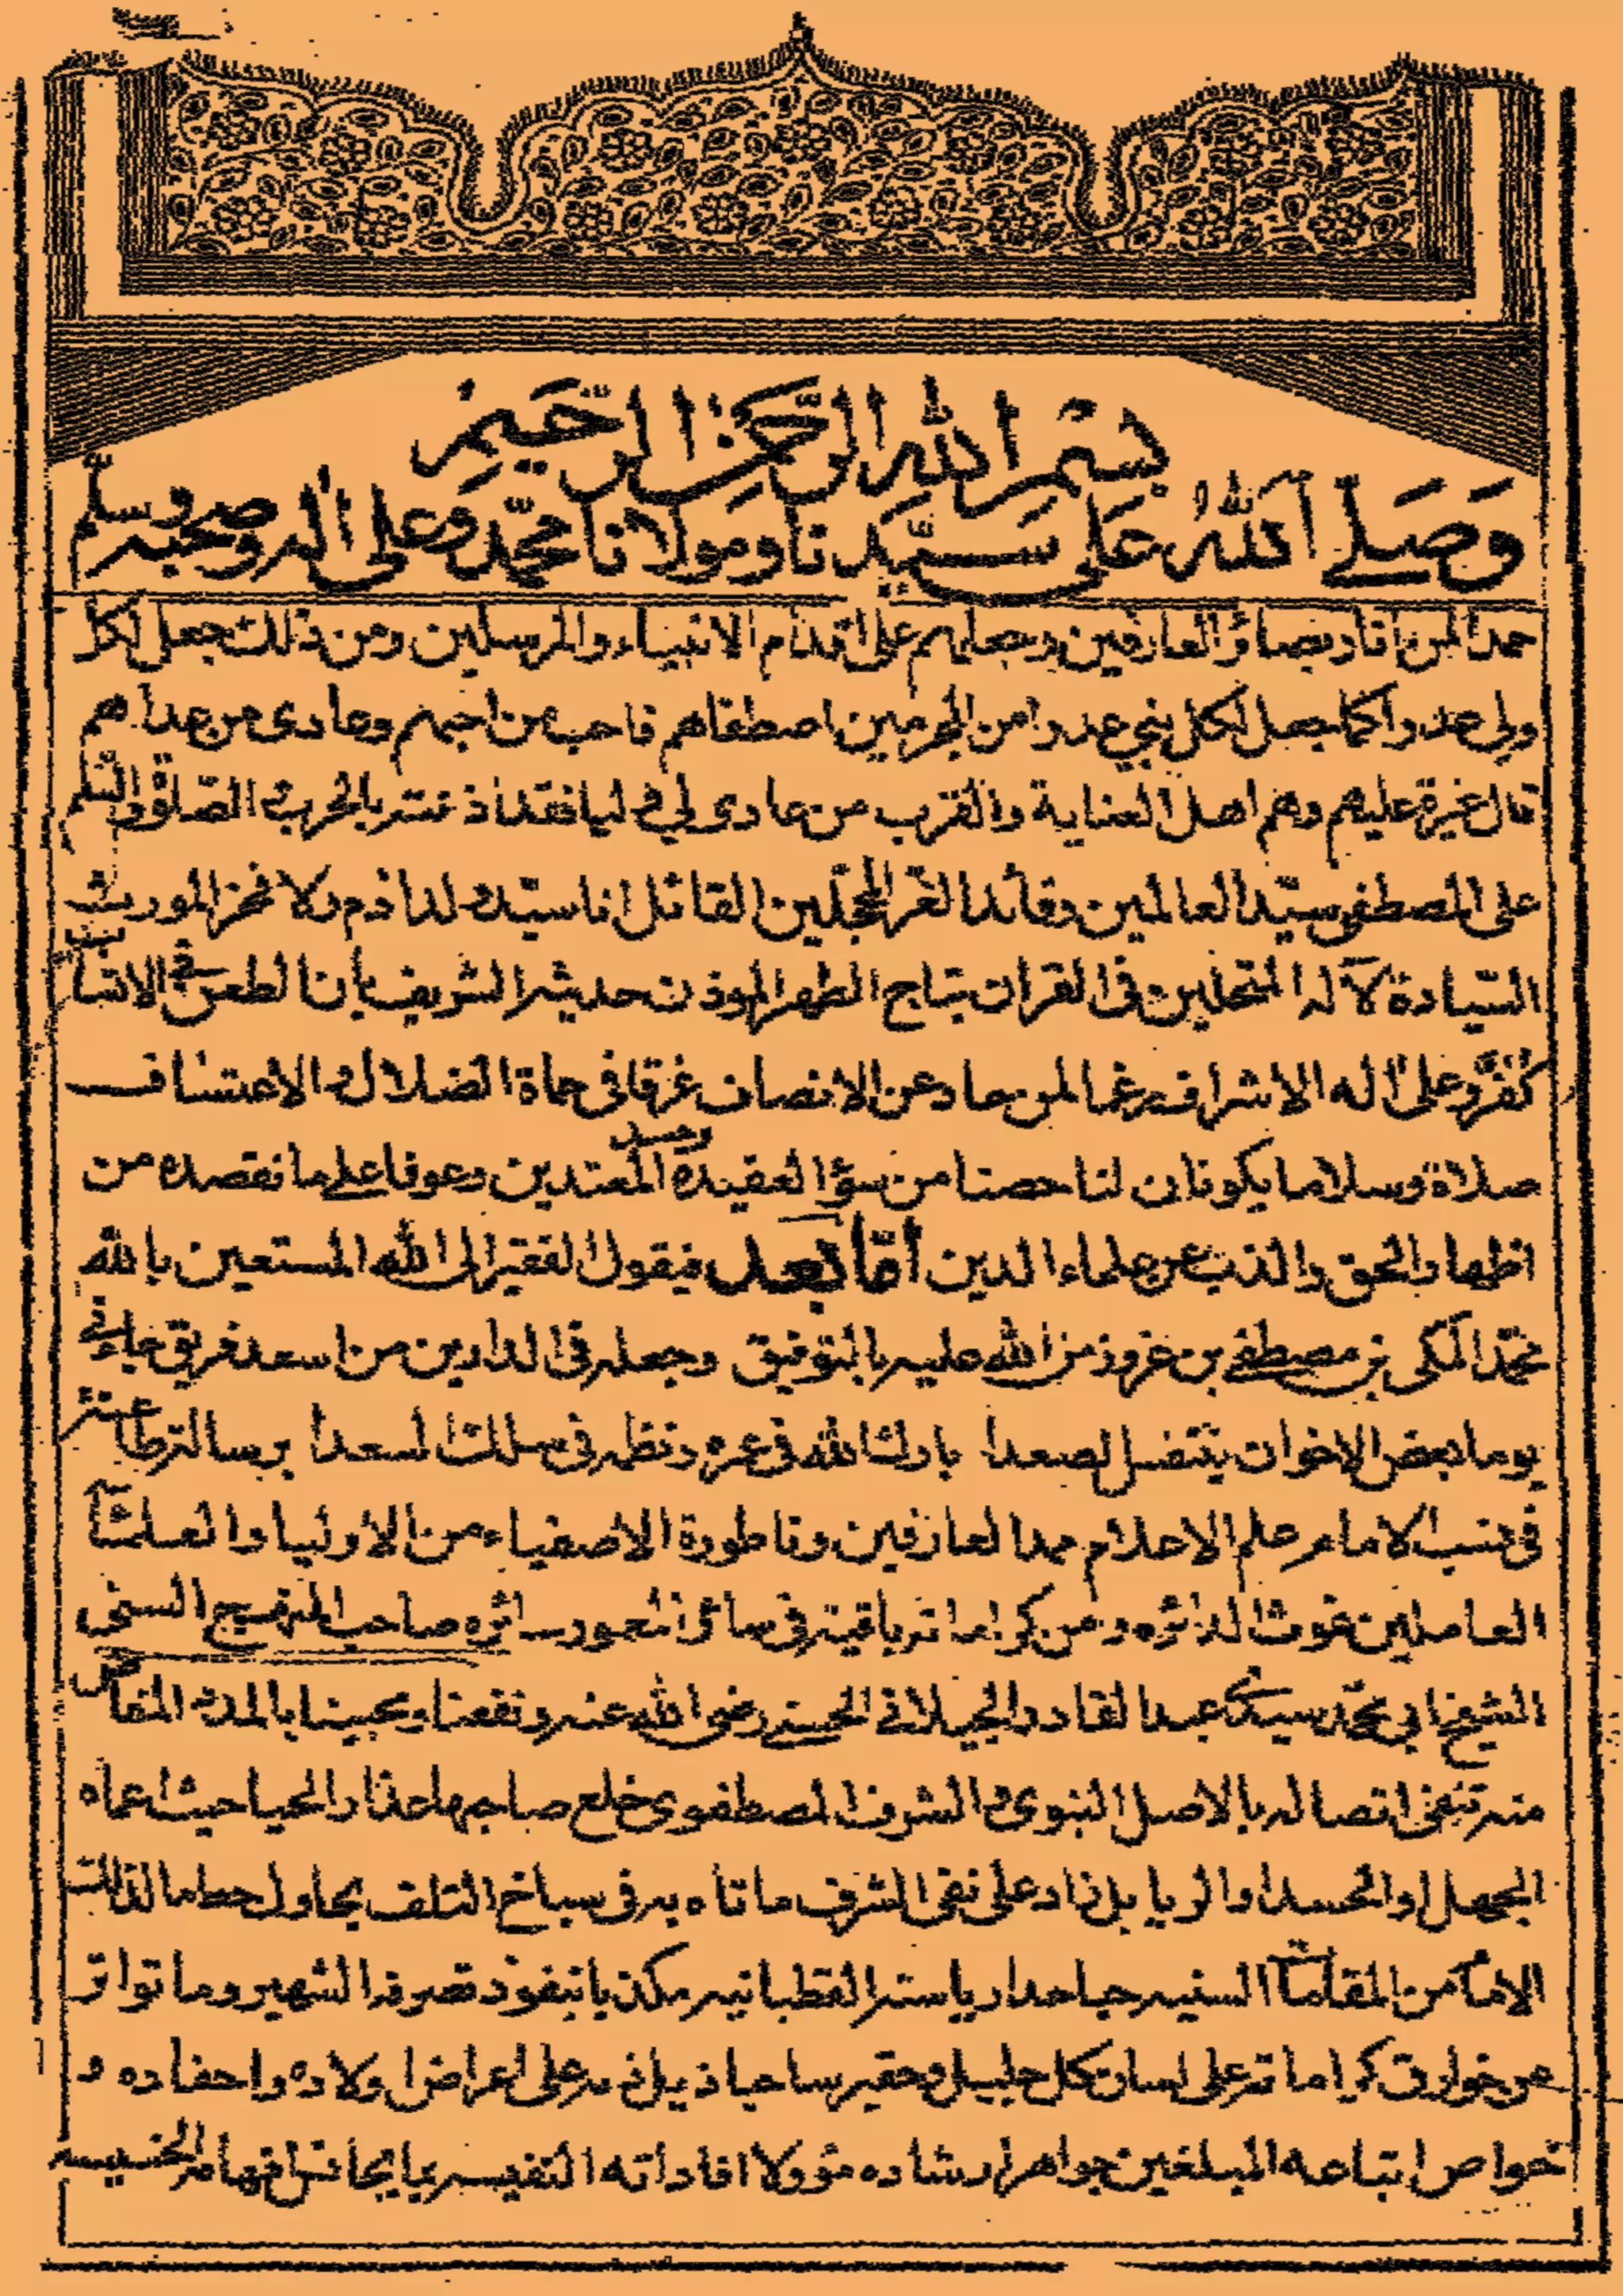 بسم الله الرحمن الرحيم
وصلى الله على سيدنا ومولانا محمد وعلى آله وصحبه وسلم
حمدا لمن انار بصائر العارفين وجعلهم على اقدام الانبياء والمرسلين ومن ذلك جعل لكل
ولي عدوا كما جعل لكل نبي عدوا من المجرمين اصطفاهم فاحب من احبهم وعادى من عداهم
قال غيرة عليهم وهم اهل العناية والقرب من عادى لي وليا فقد اذنته بالحرب الصلاة والسلم
على المصطفى سيد العالمين وقائد الغر المحجلين القائل انا سيد ولد ادم ولا فخر المورث
السيادة لآله المتحلين فى القران بتاج الطهر الموذن حديثه الشريف بأن الطعن في الانساب
كفر وعلى اله الاشراف رغما لمن حاد عن الانصاف غرقا فى حماة الضلال والاعتساف
صلاة وسلاما يكونان لنا حصنا من سوء العقيدة وحسد المعتدين وعونا على ما نقصده من
اظهار الحق والذب عن علماء الدين أما بعد فيقول الفقير الى الله المستعين بالله
محمد المكى بن مصطفى بن عزوز من الله عليه بالتوفيق وجعله فى الدارين من اسعد فريق جاءنى
يوما بعض الاخوان يتنفس الصعدا بارك الله فى عمره ونظمه فى سلك السعدا برسالة طاعنة
فى نسب الامام علم الاعلام ممد العارفين وناطورة الاصفياء من الاوليا والعلماء
العاملين غوث الدائره ومن كراماته باقية فى سائر النحور سائره صاحب المنهج السنى
الشيخ ابي محمد سيدي عبد القادر الجيلاني الحسني رضى الله عنه ونفعنا ومحبينا بالمدد الفائض
منه تنفى اتصاله بالاصل النبوى والشرف المصطفوى خلع صاحبها عذار الحيا حيث اعماه
الجهل او الحسد او الريا بل زاد على نفى الشرف ما تاه به فى سباخ التلف يحاول حط ما لذلك
الامام من المقامات السنيه جاحدا رياسته القطبانيه مكذبا بنفوذ تصرفه الشهير وما تواتر
من خوارق كراماته على لسان كل جليل وحقير ساحبا ذيل على اعراض اولاده واحفاده و
خواص اتباعه المبلغين جواهر ارشاده مؤولا افاداته النفيسه بما يجانس افهامه الخسيسه